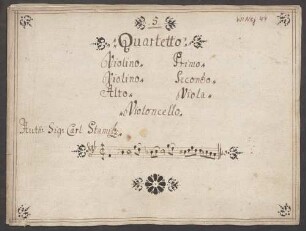 5
Quartetto.
Violino. Primo.
Violino. Secondo.
Alto. Viola.
Violoncello.
Auth: Sigr: Carl Stamitz